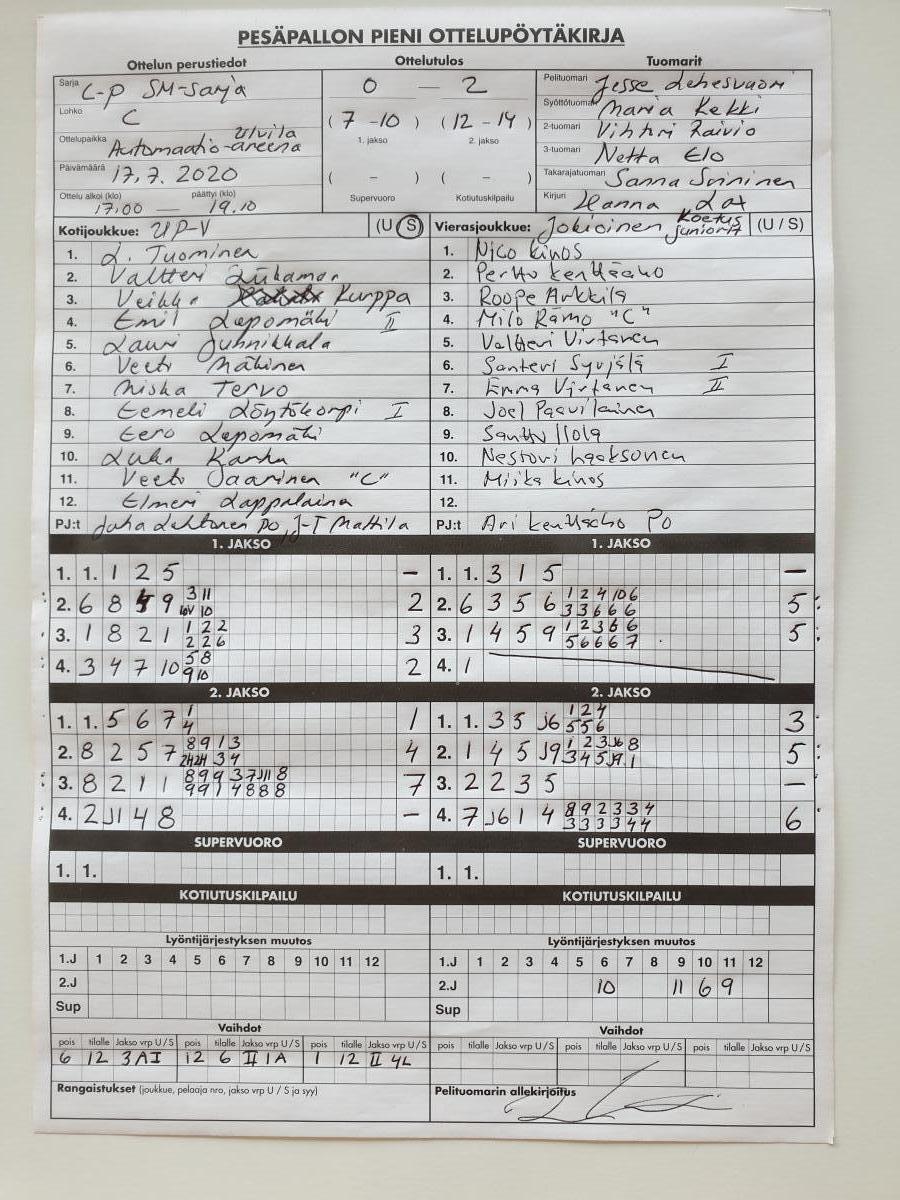 PESÄPALLON PIENI OTTELUPÖYTÄKIRJA
Ottelun perustiedot Ottelutulos Tuomarit
Sarja C-P SM-sarja
Lohko C
Ottelupaikka Automaatio-areena Ulvila
Päivämäärä 17.7.2020
Ottelu alkoi (klo) päättyi (klo)
17.00 — 19.10
0 — 2
(7 - 10) (12 - 14)
1. jakso 2. jakso
( - ) ( - )
Supervuoro Kotiutuskilpailu
Pelituomari Jesse Lehesvuori
Syöttötuomari Maria Kekki
2-tuomari Vihtori Raivio
3-tuomari Netta Elo
Takarajatuomari Sanna Suininen
Kirjuri Hanna
Kotijoukkue: UP-V (U/S)
1. L. Tuominen
2. Valtteri
3. Veikka Kurppa
4. Emil Lepomäki II
5. Lauri Juhnikkala
6. Veeti Mäkinen
7. Miska Tervo
8. Eemeli Löytökorpi I
9. Eero Lepomäki
10. Luka
11. Veeti Saarinen "C"
12. Elmeri Lappalaina
PJ:t Juha Lehtonen PO, J-T Mattila
Vierasjoukkue: Jokioinen Koetus juniorit (U / S)
1. Nico Kinos
2. Perttu Kenttäaho
3. Roope Arkkila
4. Milo Rämö "C"
5. Valtteri Virtanen
6. Santeri Syvjälä I
7. Emma Virtanen II
8. Joel Paavilainen
9. Santtu Ilola
10. Nestori Laaksonen
11. Miika Kinos
12.
PJ:t Ari Kenttäaho PO
1. JAKSO
1. 1. 1 2 5 –
2. 6 8 4 9 3 11 2
10V 10
3. 1 8 2 1 1 2 2 3
2 2 6
4. 3 4 7 10 5 8 2
9 10
1. JAKSO
1. 1. 3 1 5 –
2. 6 3 5 6 1 2 4 10 6 5
3 3 6 6 6
3. 1 4 5 9 1 2 3 6 6 5
5 6 6 6 7
4. 1
2. JAKSO
1. 1. 5 6 7 1 1
4
2. 8 2 5 7 8 9 1 3 4
2H 2H 3 4
3. 8 2 1 1 8 9 9 3 7 J11 8 7
9 9 1 4 8 8 8
4. 2 J1 4 8 –
2. JAKSO
1. 1. 3 5 J6 1 2 4 3
5 5 6
2. 1 4 5 J9 1 2 3 J6 8 5
3 4 5 J9 1
3. 2 2 3 5 –
4. 7 J6 1 4 8 9 2 3 3 4 6
3 3 3 3 4 4
SUPERVUORO
1. 1.
SUPERVUORO
1. 1.
KOTIUTUSKILPAILU
KOTIUTUSKILPAILU
Lyöntijärjestyksen muutos
1.J 1 2 3 4 5 6 7 8 9 10 11 12
2.J
Sup
Lyöntijärjestyksen muutos
1.J 1 2 3 4 5 6 7 8 9 10 11 12
2.J 10 11 6 9
Sup
Vaihdot
pois tilalle Jakso vrp U/S pois tilalle Jakso vrp U/S pois tilalle Jakso vrp U/S
6 12 3AI 12 6 II 1A 1 12 II 4L
Rangaistukset (joukkue, pelaaja nro, jakso vrp U / S ja syy)
Vaihdot
pois tilalle Jakso vrp U/S pois tilalle Jakso vrp U/S pois tilalle Jakso vrp U/S
Pelituomarin allekirjoitus